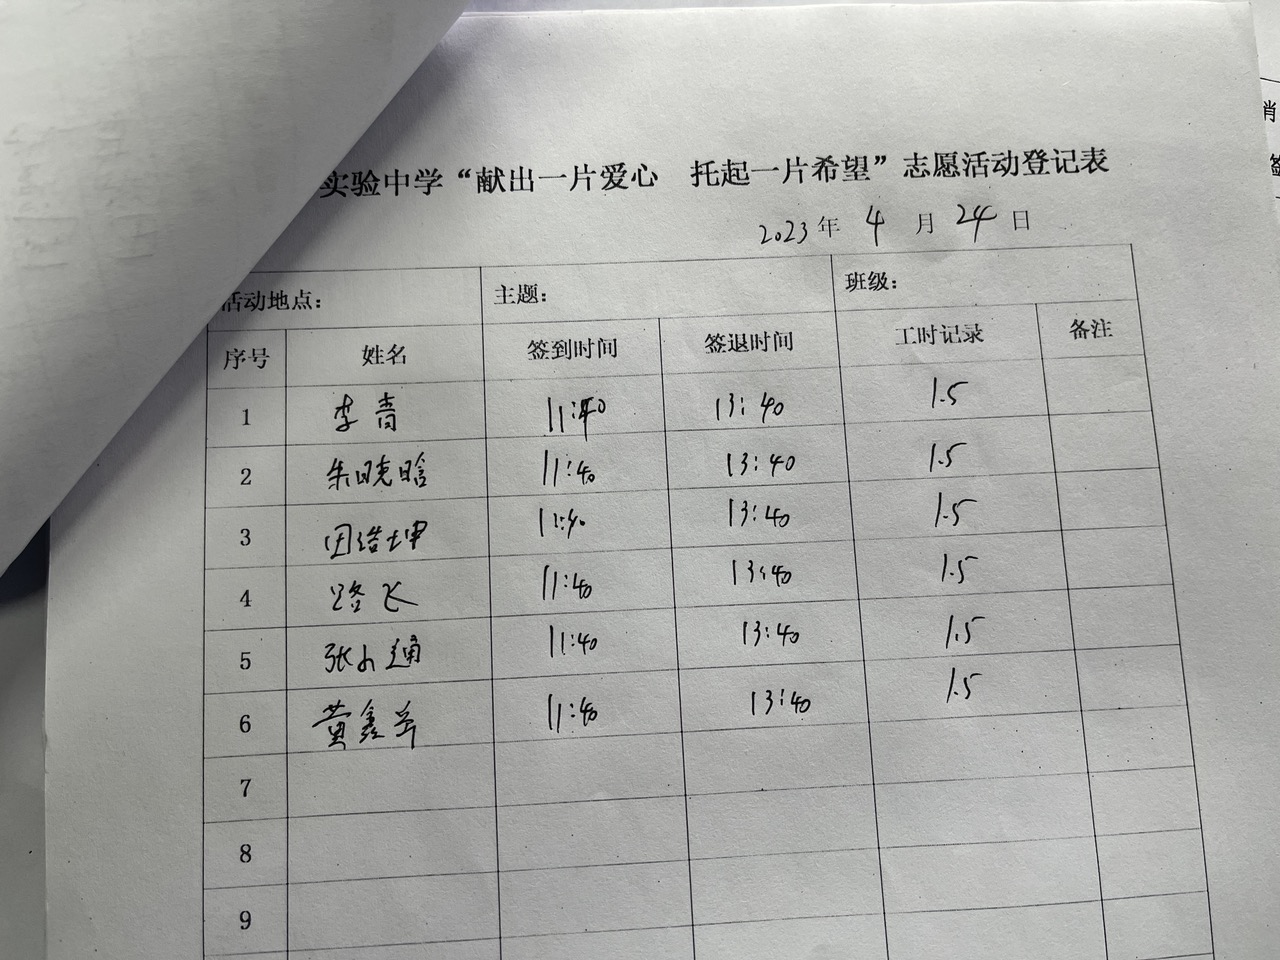 实验中学“献出一片爱心 托起一片希望”志愿活动登记表
2023 年 4 月 24 日
活动地点： 主题： 班级：
序号 姓名 签到时间 签退时间 工时记录 备注
1 李青 11:40 13:40 1.5
2 朱晓晗 11:40 13:40 1.5
3 田浩坤 11:40 13:40 1.5
4 路飞 11:40 13:40 1.5
5 张小通 11:40 13:40 1.5
6 黄鑫 11:40 13:40 1.5
7
8
9
肖